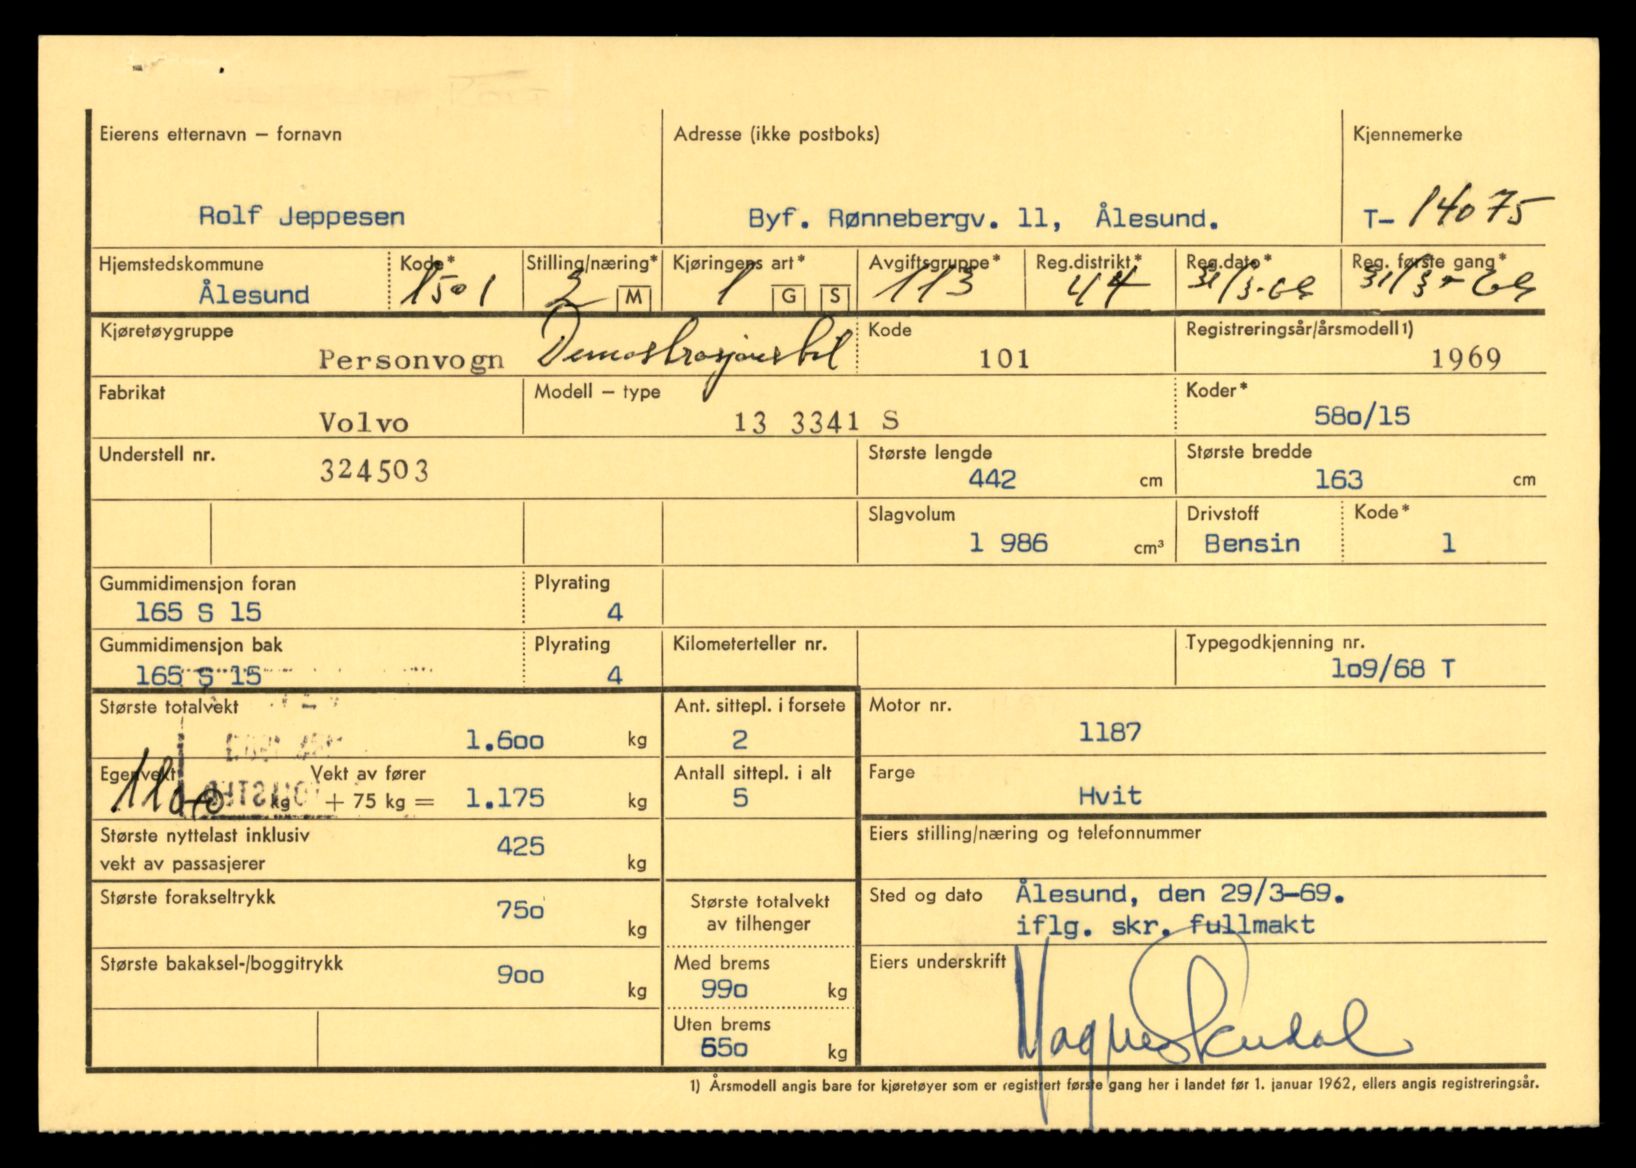 Eierens etternavn – fornavn Adresse (ikke postboks) Kjennemerke
Rolf Jeppesen Byf. Rønnebergv. 11, Ålesund. T- 14075
Hjemstedskommune Kode* Stilling/næring* Kjøringens art* Avgiftsgruppe* Reg.distrikt* Reg.dato* Reg. første gang*
Ålesund 1501 2 M 1 G S 113 44 31/3-69 31/3-69
Kjøretøygruppe Kode Registreringsår/årsmodell 1)
Personvogn Demostrasjonsbil 101 1969
Fabrikat Modell – type Koder*
Volvo 13 3341 S 580/15
Understell nr. Største lengde Største bredde
324503 442 cm 163 cm
Slagvolum Drivstoff Kode*
1 986 cm³ Bensin 1
Gummidimensjon foran Plyrating
165 S 15 4
Gummidimensjon bak Plyrating Kilometerteller nr. Typegodkjenning nr.
165 S 15 4 109/68 T
Største totalvekt Ant. sittepl. i forsete Motor nr.
1.600 kg 2 1187
Egenvekt Vekt av fører Antall sittepl. i alt Farge
1100 kg + 75 kg = 1.175 kg 5 Hvit
Største nyttelast inklusiv Eiers stilling/næring og telefonnummer
vekt av passasjerer 425 kg
Største forakseltrykk 750 kg Største totalvekt Sted og dato Ålesund, den 29/3-69.
av tilhenger iflg. skr. fullmakt
Største bakaksel-/boggitrykk 900 kg Med brems Eiers underskrift
990 kg
Uten brems
650 kg
1) Årsmodell angis bare for kjøretøyer som er registrert første gang her i landet før 1. januar 1962, ellers angis registreringsår.